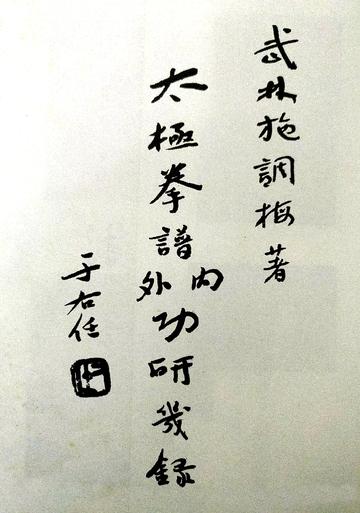 武林施調梅著
太極拳譜內外功研幾錄
于右任